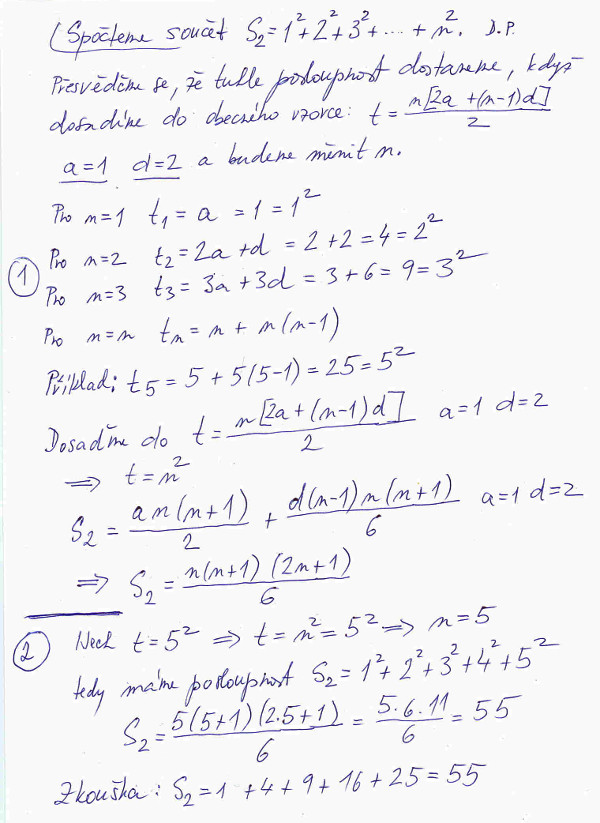 Spočteme součet S₂=1²+2²+3²+...+n². D.P.
Přesvědčíme se, že tuhle posloupnost dostaneme, když
dosadíme do obecného vzorce: t = n[2a+(n-1)d]/2
a=1 d=2 a budeme měnit n.
Pro n=1 t₁=a =1=1²
① Pro n=2 t₂=2a+d =2+2=4=2²
Pro n=3 t₃=3a+3d =3+6=9=3²
Pro n=n tₙ=n+n(n-1)
Příklad: t₅=5+5(5-1)=25=5²
Dosaďme do t= n[2a+(n-1)d]/2 a=1 d=2
⇒ t=n²
S₂ = an(n+1)/2 + d(n-1)n(n+1)/6 a=1 d=2
⇒ S₂= n(n+1)(2n+1)/6
② Nech t=5² ⇒ t=n²=5² ⇒ n=5
tedy máme posloupnost S₂=1²+2²+3²+4²+5²
S₂= 5(5+1)(2.5+1)/6 = 5.6.11/6 = 55
Zkouška: S₂=1+4+9+16+25=55